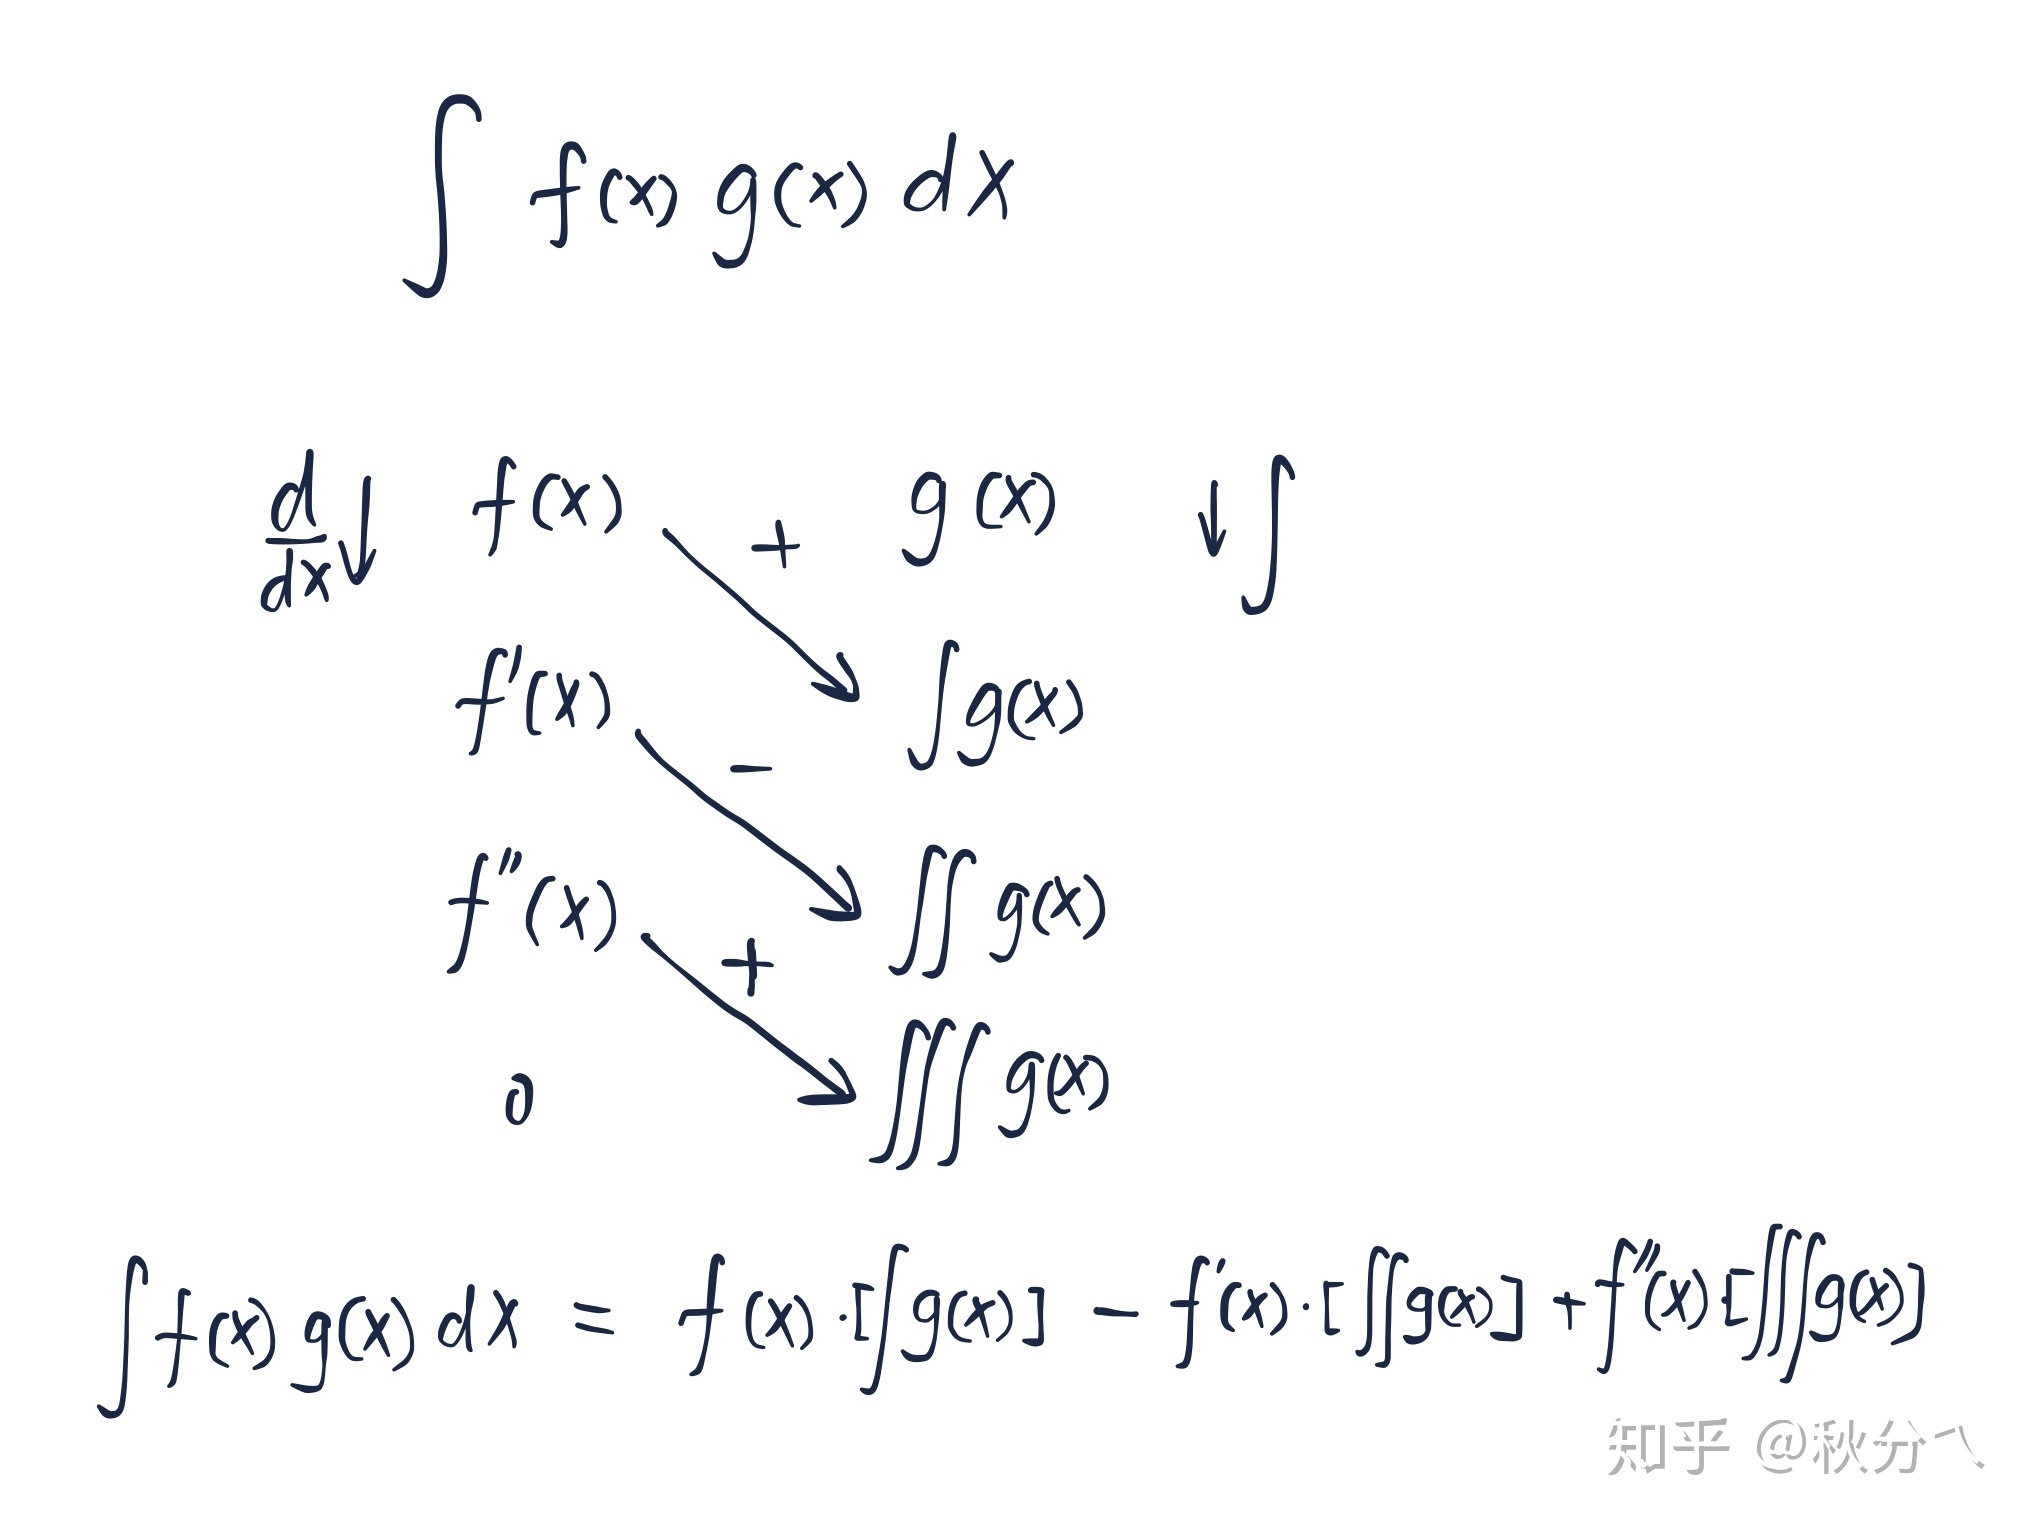 ∫ f(x) g(x) dx
d/dx ↓ f(x) + g(x) ↓ ∫
f'(x) − ∫g(x)
f''(x) + ∬ g(x)
0 ∭ g(x)
∫f(x) g(x) dx = f(x)·[∫g(x)] − f'(x)·[∬g(x)] + f''(x)·[∭g(x)]
知乎 @秋分八